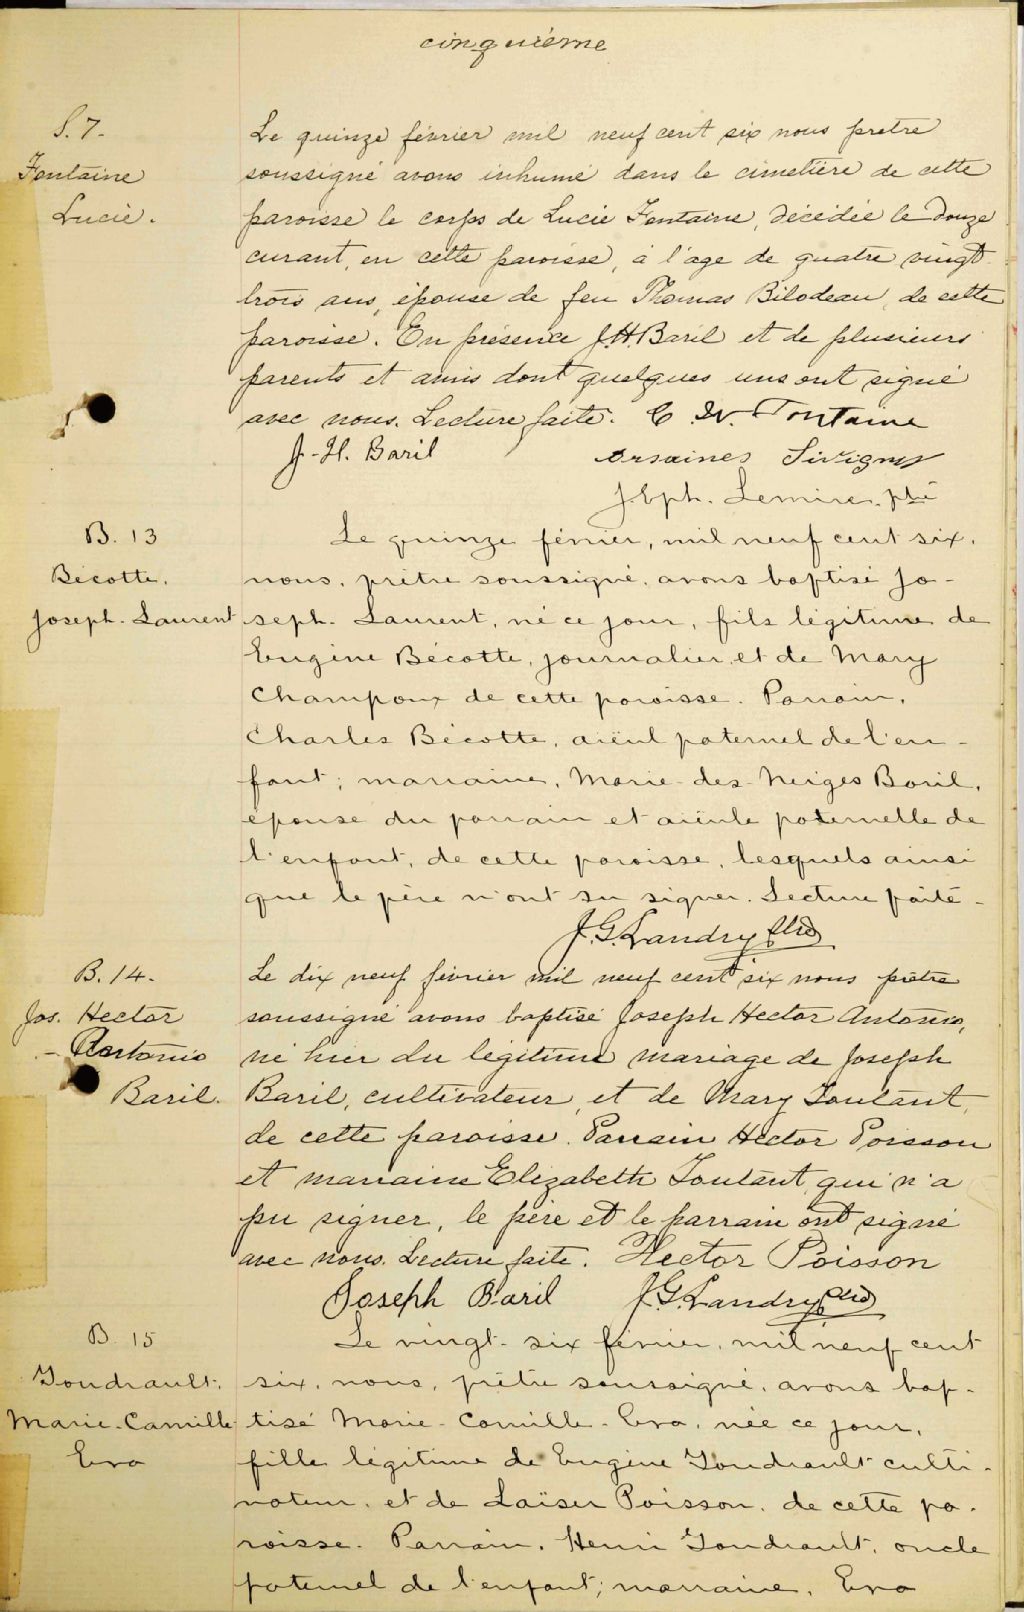 cinquième
S. 7.
Fontaine
Lucie.
Le quinze février mil neuf cent six nous pretre
soussigné avons inhumé dans le cimetière de cette
paroisse le corps de Lucie Fontaine, décédée le douze
curant, en cette paroisse, à l'age de quatre vingt
trois ans, épouse de feu Thomas Bilodeau, de cette
paroisse. En présence J.H. Baril et de plusieurs
parents et amis dont quelques uns ont signé
avec nous. Lecture faite. C. W. Fontaine
J.-H. Baril Orsaines Sivigny
J. Eph. Lemire. ptre
B. 13
Bécotte.
Joseph. Laurent
Le quinze février, mil neuf cent six,
nous, prêtre soussigné, avons baptisé Jo-
seph. Laurent, né ce jour, fils légitime de
Eugène Bécotte, journalier, et de Mary
Champoux de cette paroisse. Parrain,
Charles Bécotte, aïeul paternel de l'en-
fant; marraine, Marie-des-Neiges Baril,
épouse du parrain et aïeule paternelle de
l'enfant, de cette paroisse, lesquels ainsi
que le père n'ont su signer. Lecture faite-
J. G. Landry Ptre
B. 14.
Jos. Hector
- Antonio
Baril.
Le dix neuf février mil neuf cent six nous prêtre
soussigné avons baptisé Joseph Hector Antonio,
né hier du légitime mariage de Joseph
Baril, cultivateur, et de Mary Toutant,
de cette paroisse. Parrain Hector Poisson
et marraine Elizabeth Toutant, qui n'a
pu signer, le père et le parrain ont signé
avec nous. Lecture faite. Hector Poisson
Joseph Baril J. G. Landry Ptre
B. 15
Goudrault.
Marie-Camille
Eva
Le vingt-six février, mil neuf cent
six, nous, prêtre soussigné, avons bap-
tisé Marie-Camille-Eva, née ce jour,
fille légitime de Eugène Goudrault culti-
vateur, et de Poisson, de cette pa-
roisse. Parrain, Henri Goudrault, oncle
paternel de l'enfant; marraine, Eva